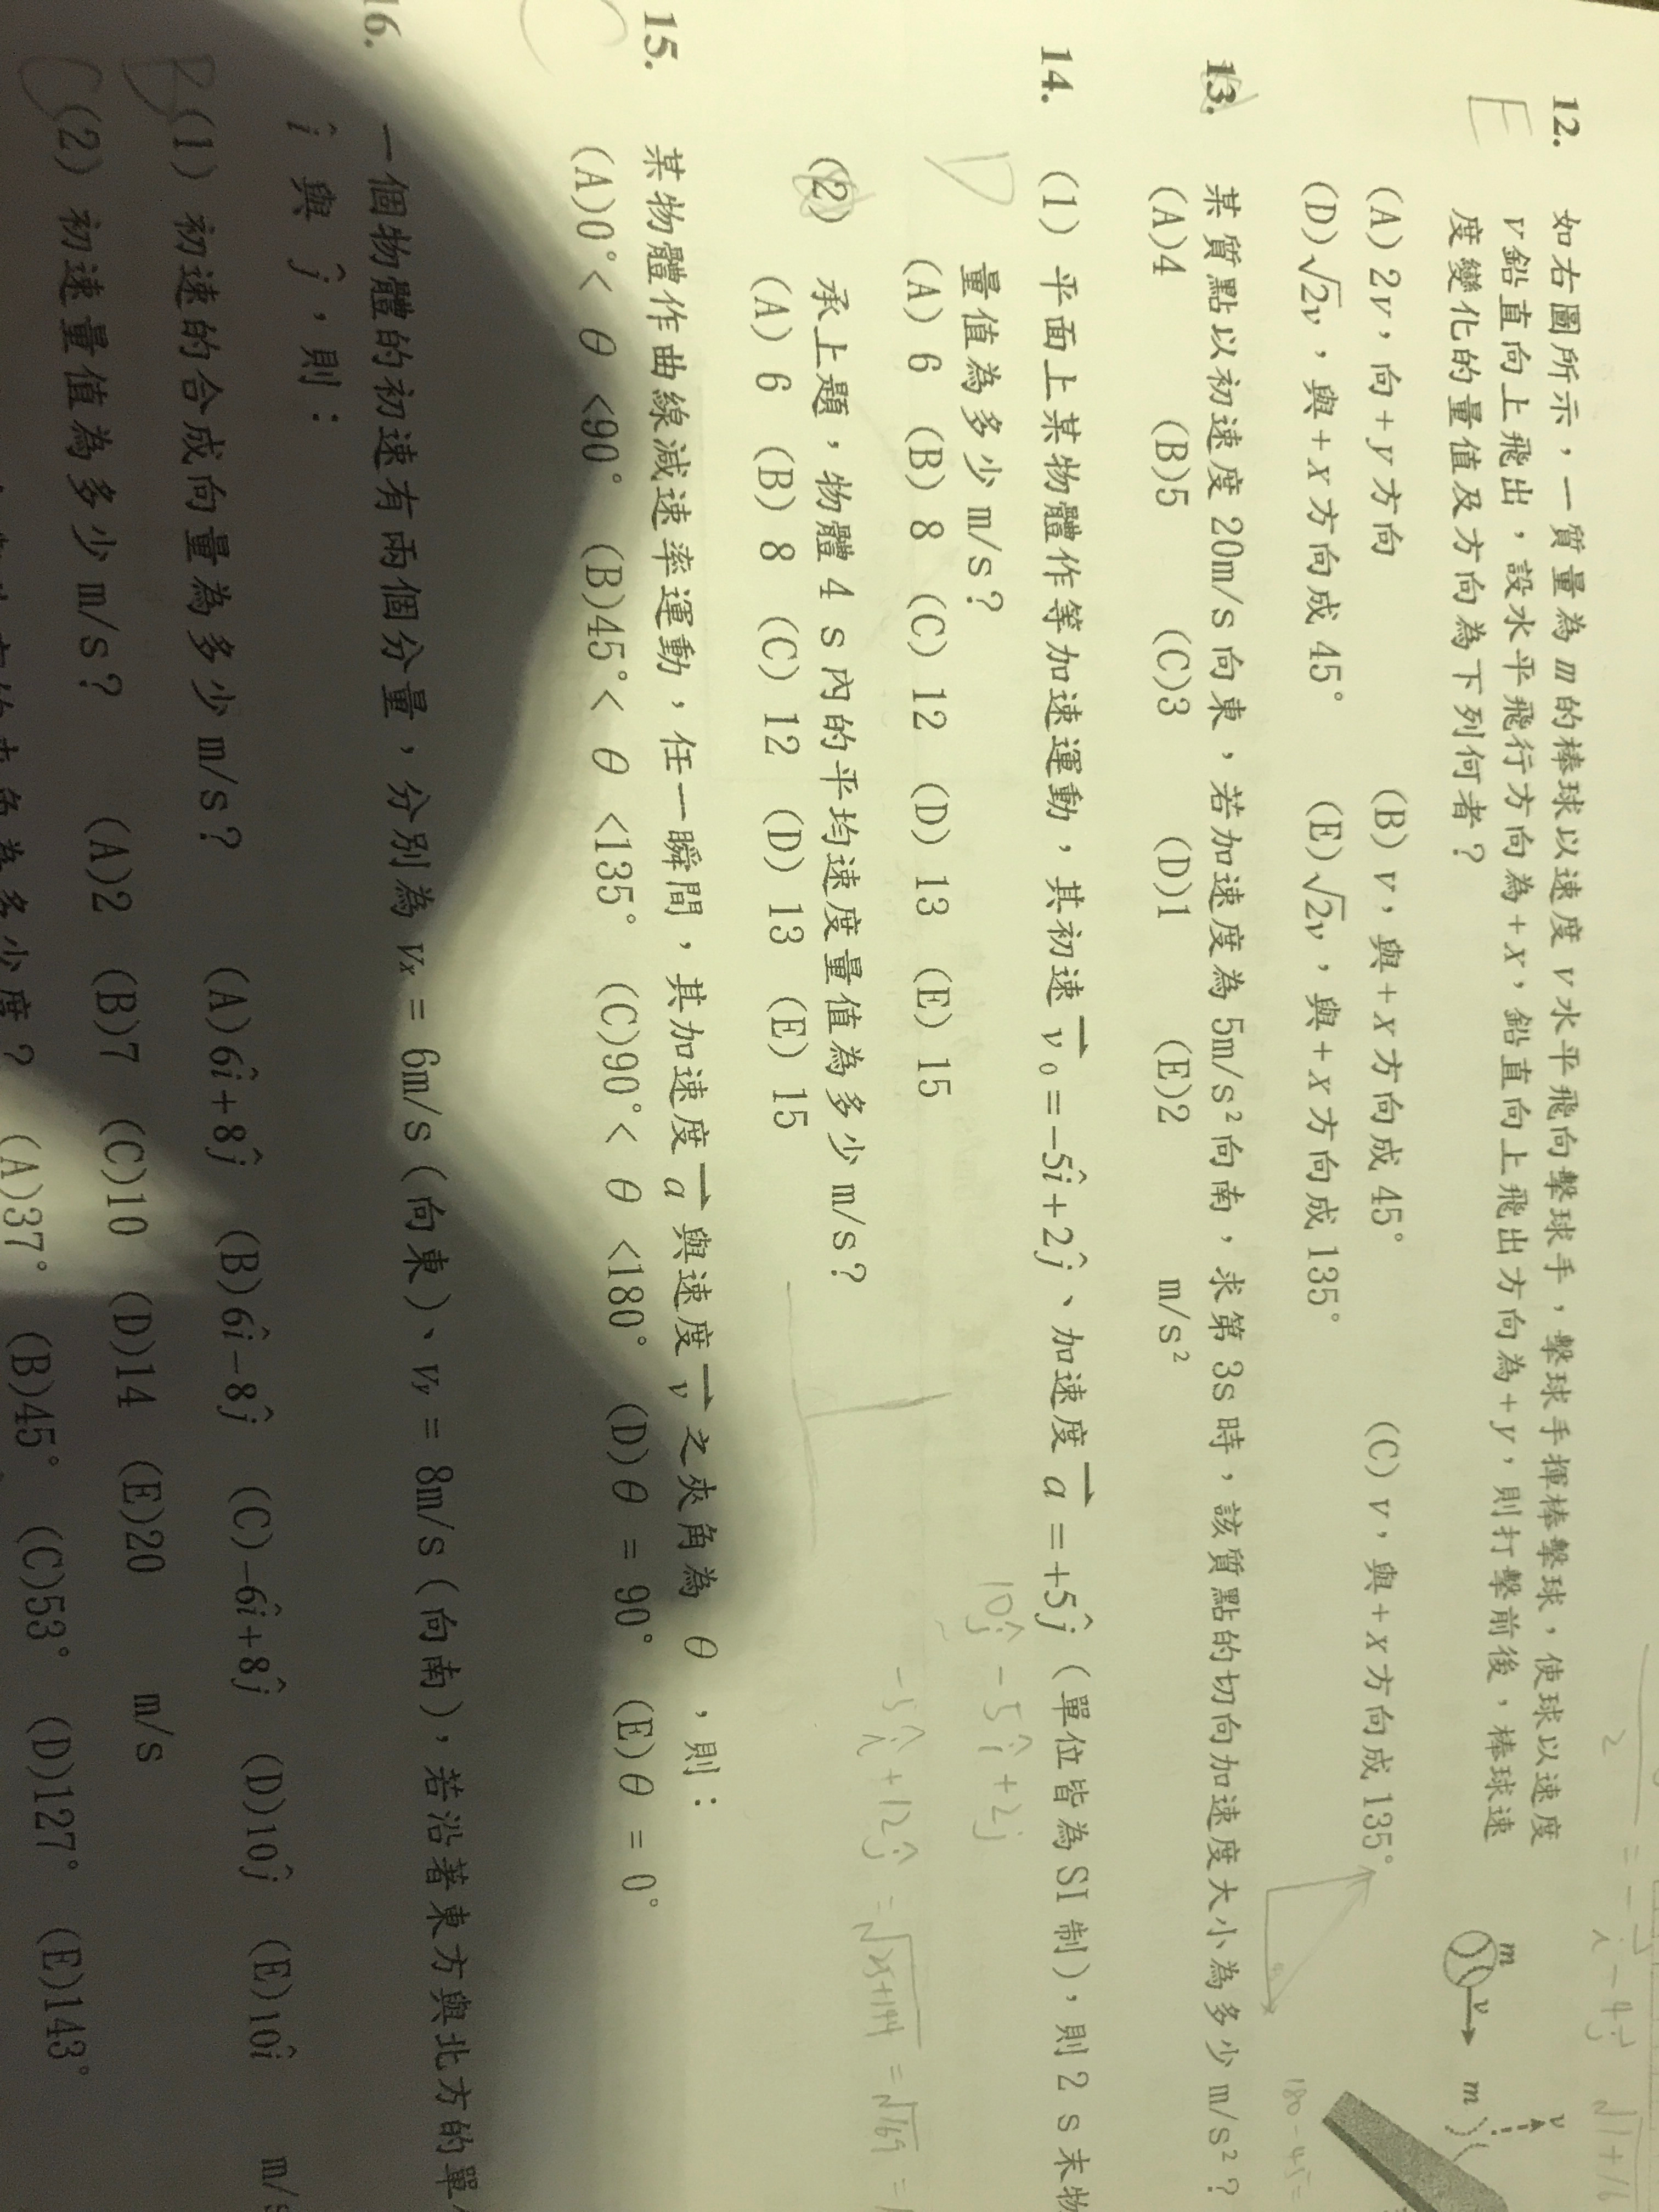 12. 如右圖所示，一質量為m的棒球以速度v水平飛向擊球手，擊球手揮棒擊球，使球以速度
v鉛直向上飛出，設水平飛行方向為+x，鉛直向上飛出方向為+y，則打擊前後，棒球速
度變化的量值及方向為下列何者？
E
(A) 2v，向+y方向 (B) v，與+x方向成45° (C) v，與+x方向成135°
(D)√2v，與+x方向成45° (E)√2v，與+x方向成135°
m v m v
13. 某質點以初速度20m/s向東，若加速度為5m/s²向南，求第3s時，該質點的切向加速度大小為多少m/s²？
(A)4 (B)5 (C)3 (D)1 (E)2 m/s²
14. (1) 平面上某物體作等加速運動，其初速v⃗₀=-5î+2ĵ、加速度a⃗=+5ĵ（單位皆為SI制），則2 s末物
量值為多少m/s？
D
(A) 6 (B) 8 (C) 12 (D) 13 (E) 15
10ĵ -5î+2ĵ
-5î+12ĵ =√25+144 =√169 =
(2) 承上題，物體4 s內的平均速度量值為多少m/s？
(A) 6 (B) 8 (C) 12 (D) 13 (E) 15
15. 某物體作曲線減速率運動，任一瞬間，其加速度a⃗與速度v⃗之夾角為θ，則：
(A)0°<θ<90° (B)45°<θ<135° (C)90°<θ<180° (D)θ=90° (E)θ=0°
C
16. 一個物體的初速有兩個分量，分別為vₓ=6m/s（向東）、vᵧ=8m/s（向南），若沿著東方與北方的單
î與ĵ，則：
B (1) 初速的合成向量為多少m/s？ (A)6î+8ĵ (B)6î-8ĵ (C)-6î+8ĵ (D)10ĵ (E)10î m/s
C (2) 初速量值為多少m/s？ (A)2 (B)7 (C)10 (D)14 (E)20 m/s
為多少度？ (A)37° (B)45° (C)53° (D)127° (E)143°